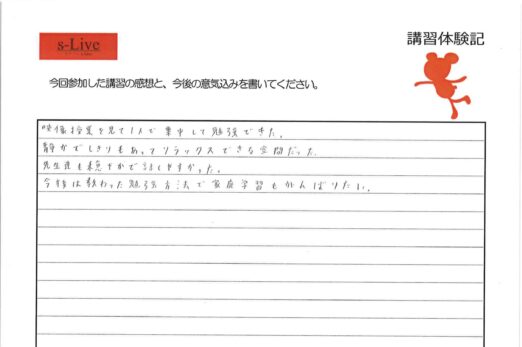 s-Live
講習体験記
今回参加した講習の感想と、今後の意気込みを書いてください。
映像授業を見て1人で集中して勉強できた。
静かでしきりもあってリラックスできる空間だった。
先生達も穏やかで話しやすかった。
今後は教わった勉強方法で家庭学習もがんばりたい。